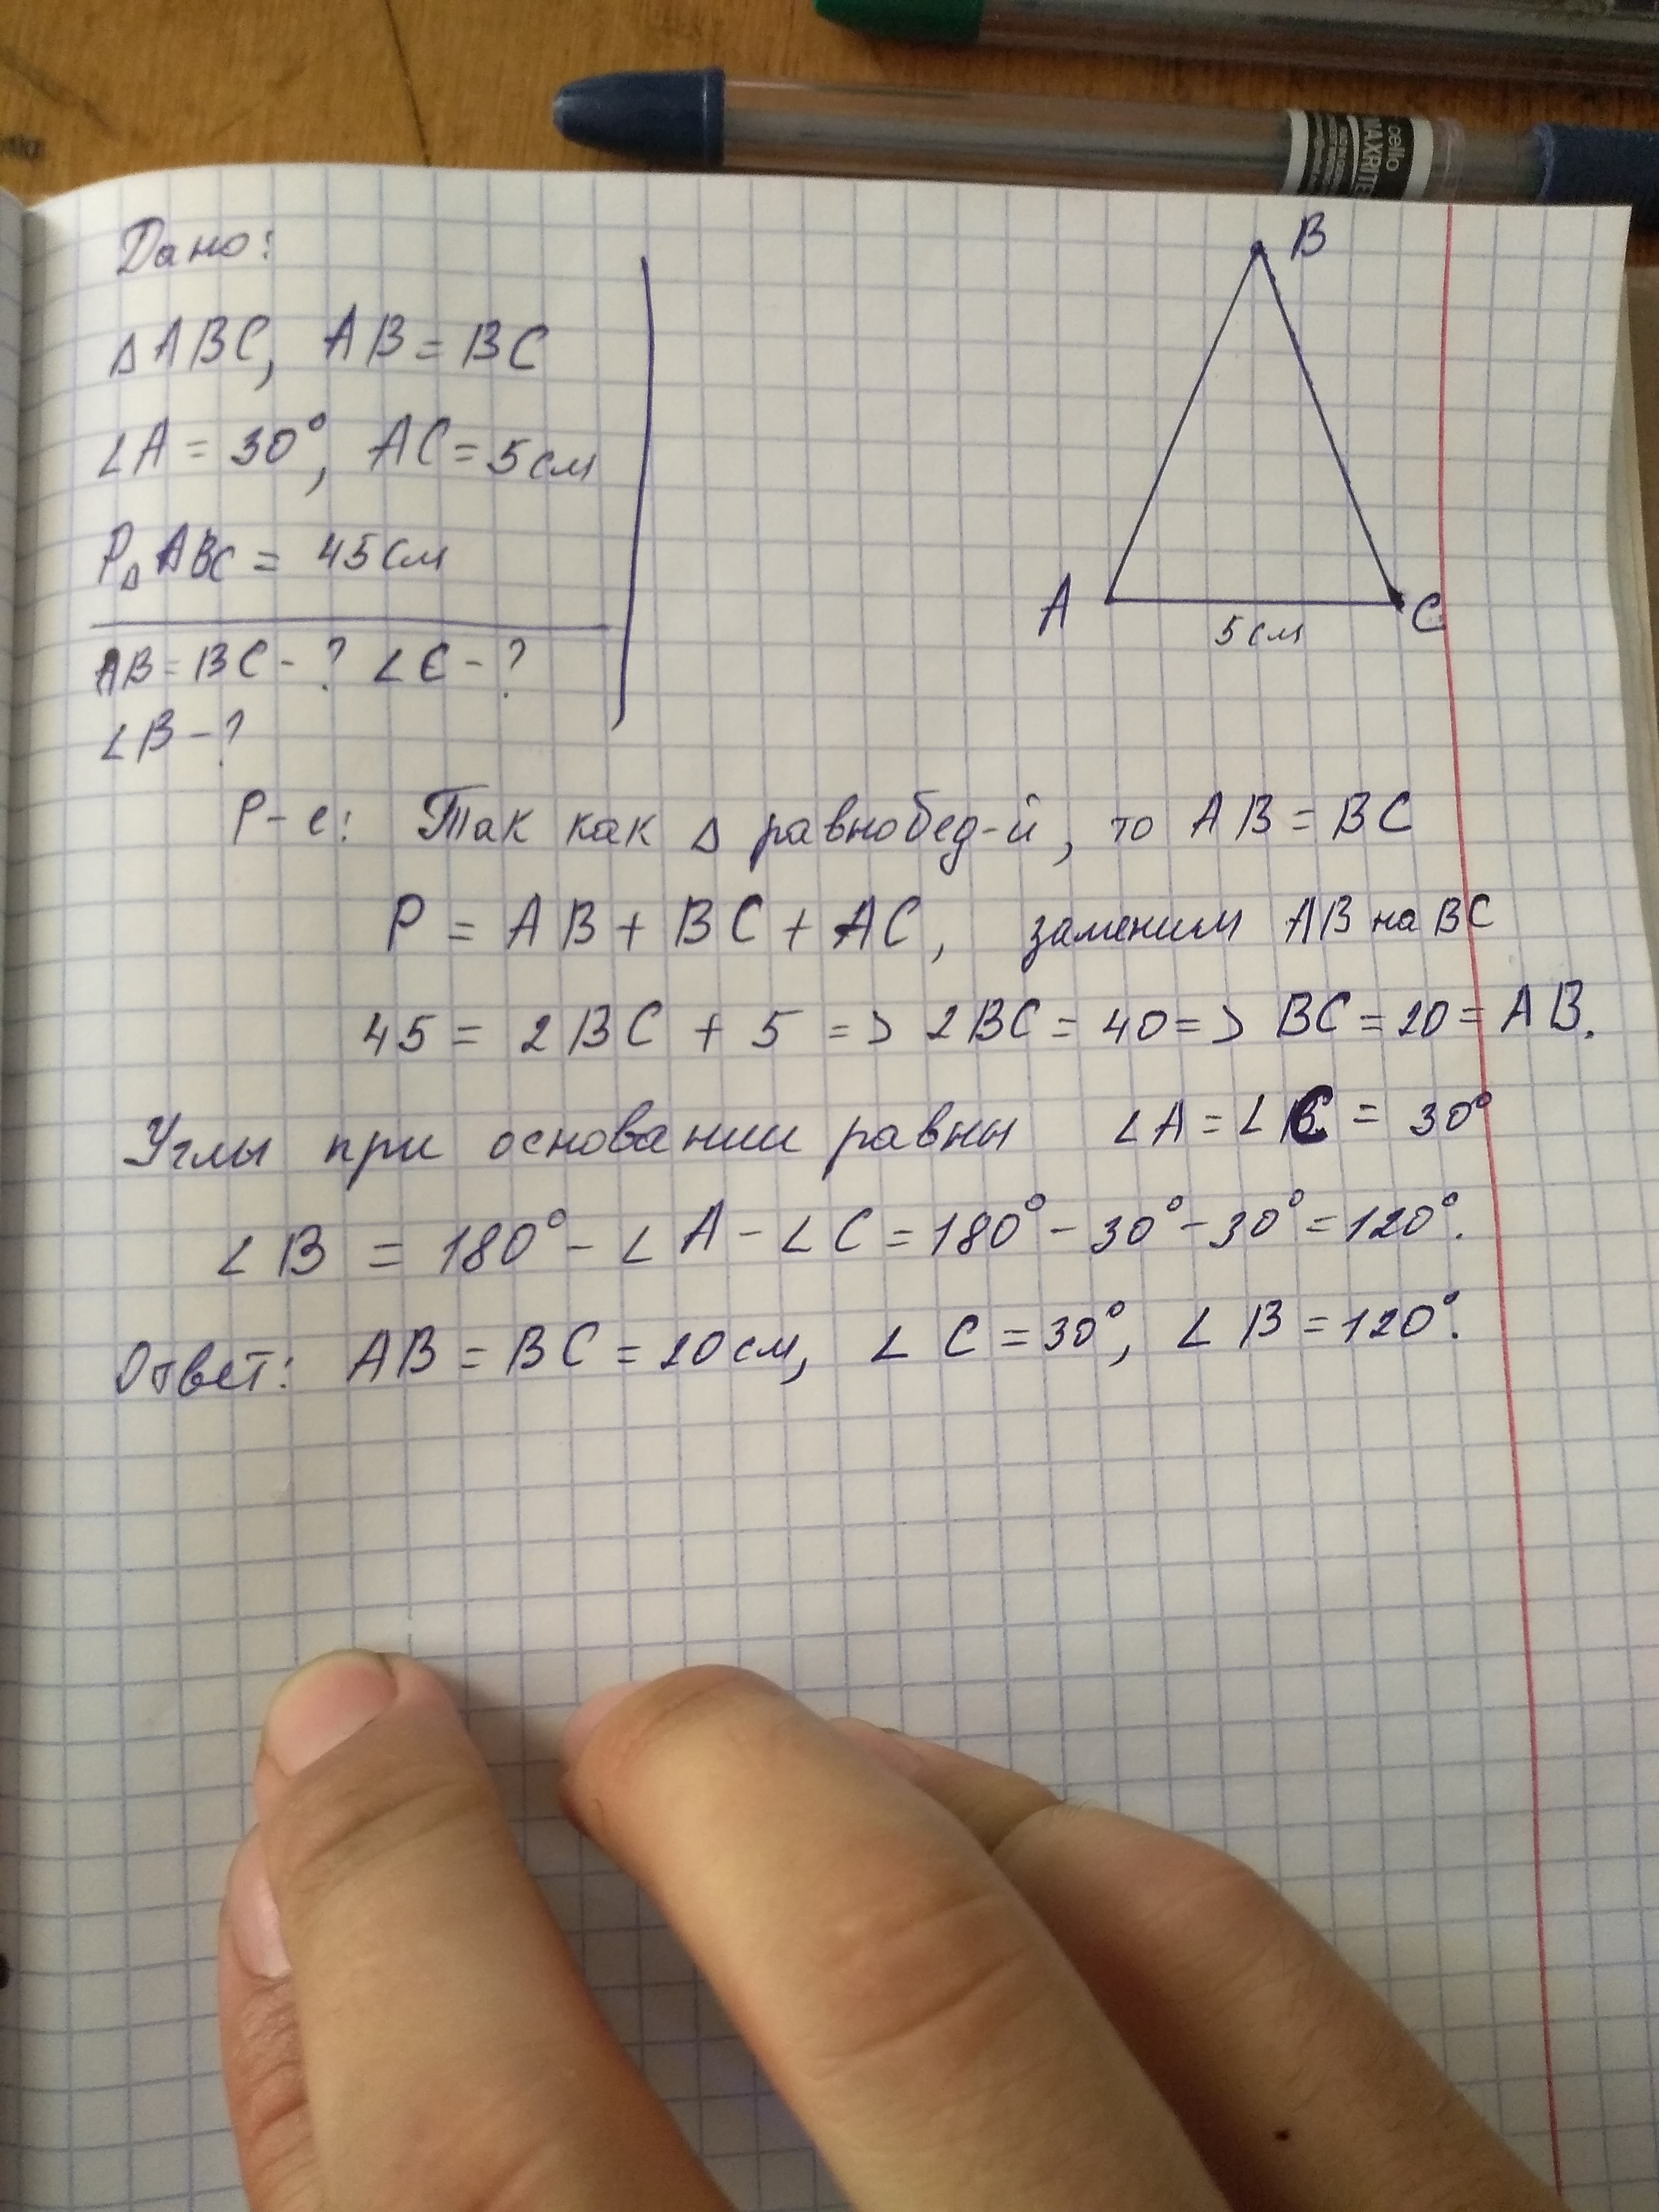 cello
MAXRITE
Дано:
B
∆ABC, AB = BC
∠A = 30°, AC = 5см
P∆ABC = 45см
A
C
5см
AB = BC - ? ∠C - ?
∠B - ?
Р-е: Так как ∆ равнобед-й, то AB = BC
P = AB + BC + AC, заменим AB на BC
45 = 2BC + 5 => 2BC = 40 => BC = 20 = AB.
Углы при основании равны ∠A = ∠C = 30°
∠B = 180° - ∠A - ∠C = 180° - 30° - 30° = 120°.
Ответ: AB = BC = 20см, ∠C = 30°, ∠B = 120°.